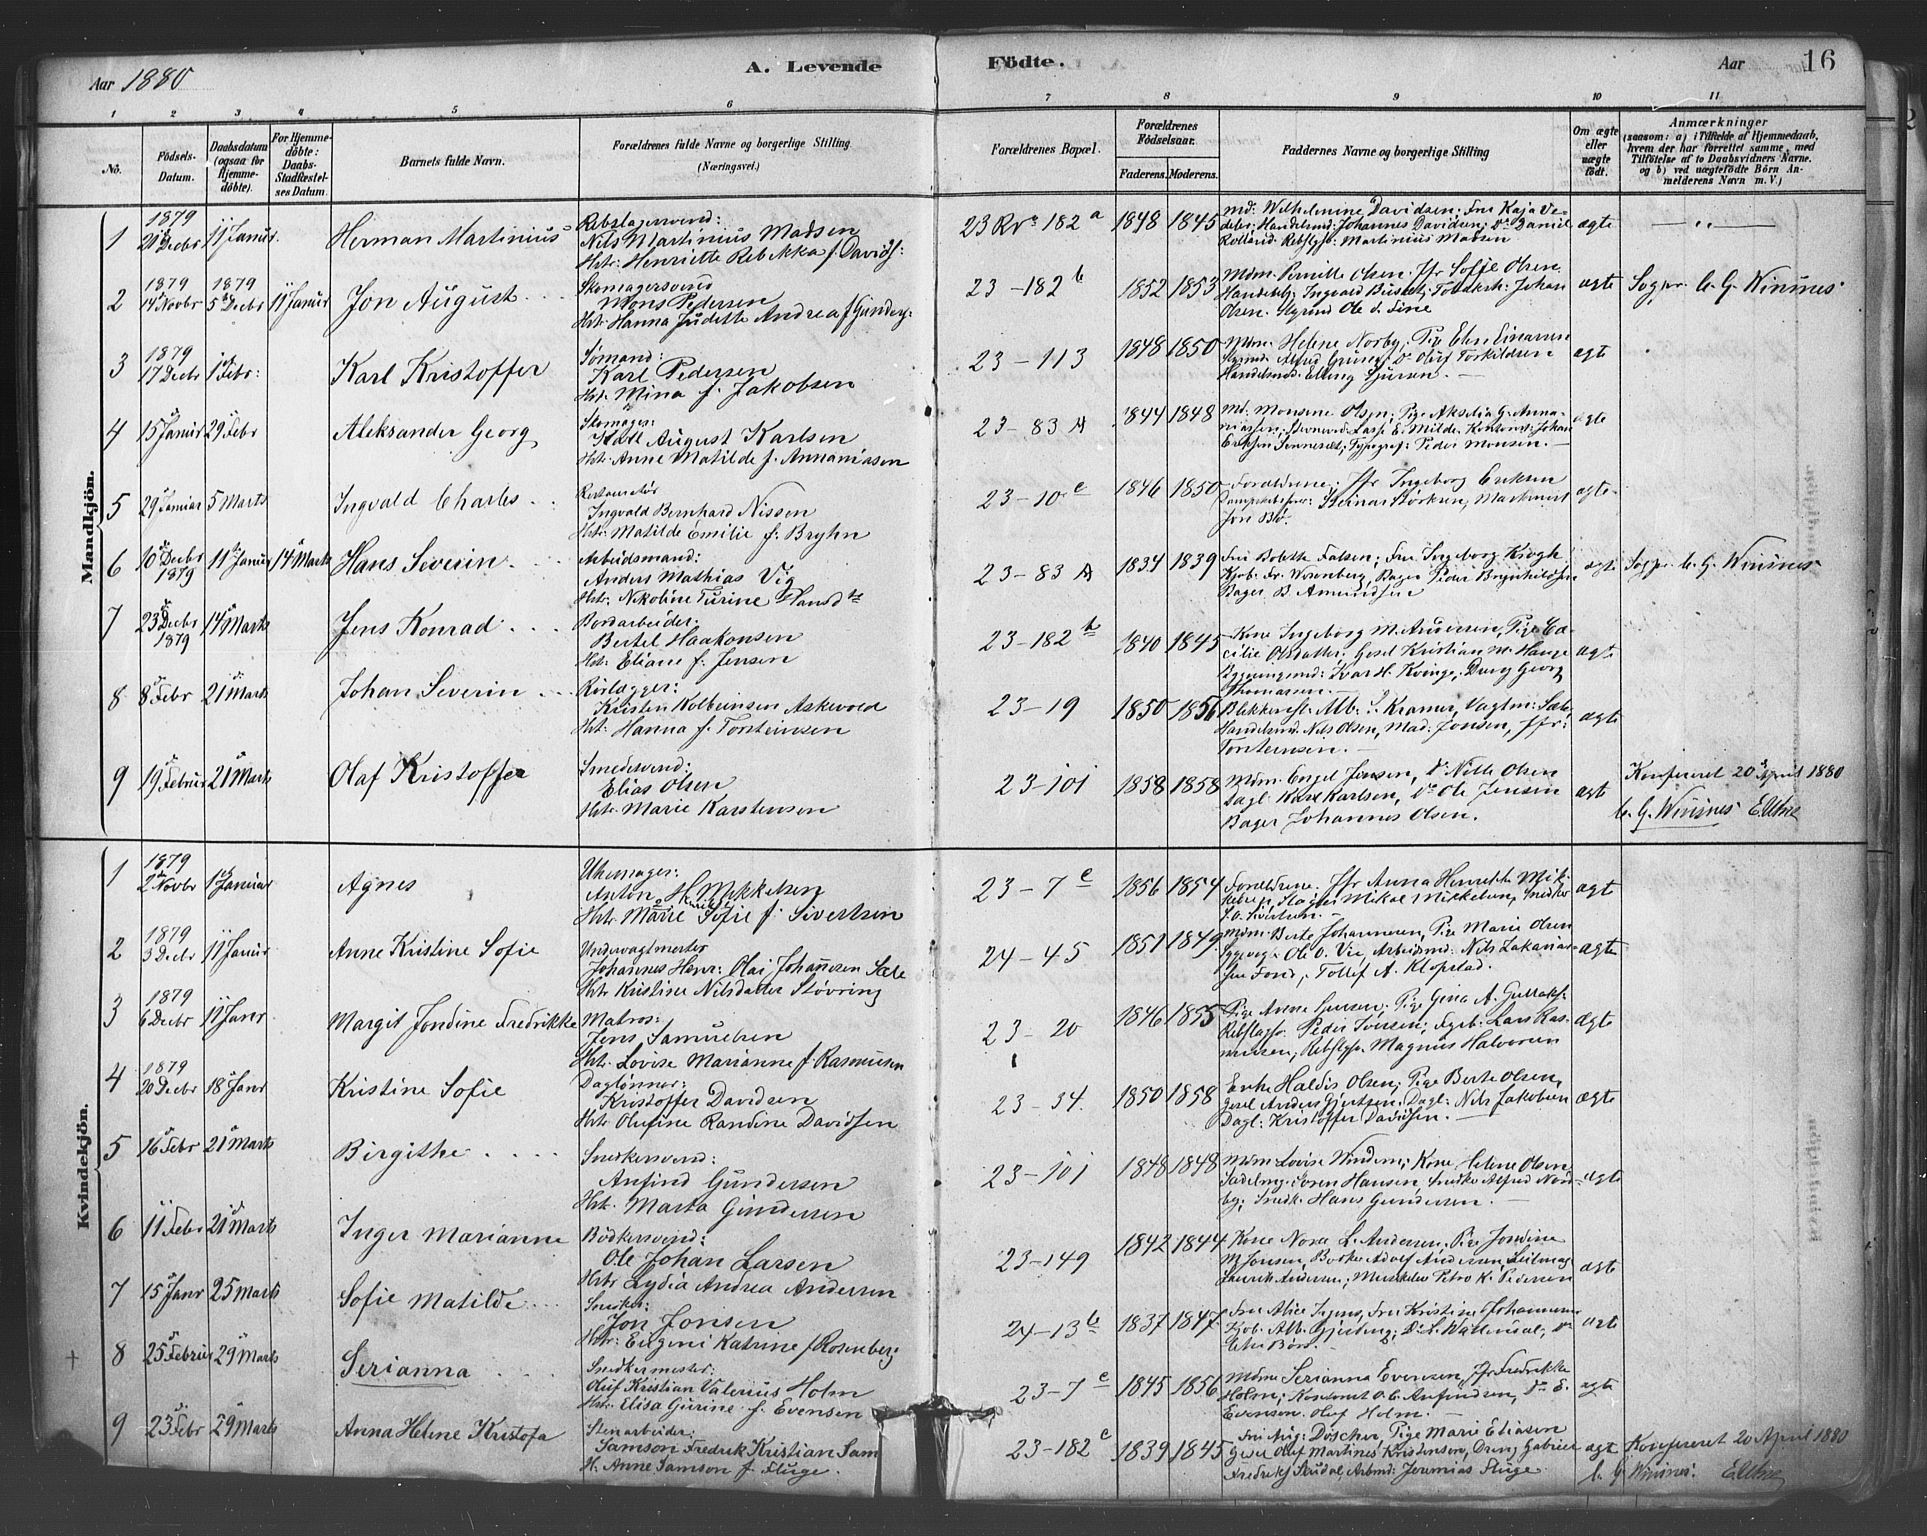 Aar 1880
A. Levende Födte.
Aar 16
1 2 3 4 5 6 7 8 9 10 11
No.
Födsels-Datum.
Daabsdatum (ogsaa for hjemmedöbte).
For Hjemmedöbte: Daabs-Stadfæstelses Datum.
Barnets fulde Navn.
Forældrenes fulde Navne og borgerlige Stilling (Næringsvei.)
Forældrenes Bopæl.
Forældrenes Födselsaar.
Faderens. Moderens.
Faddernes Navne og borgerlige Stilling
Om ægte eller uægte födt.
Anmærkninger
(saasom: a) i Tilfælde af Hjemmedaab, hvem der har forrettet samme, med Tilföielse af to Daabsvidners Navne. og b) ved uægtefödte Börn Anmelderens Navn m. V.)
Mandkjön.
1 1879 21 Decbr 11 Januar Herman Martinius
Rebslagersvend:
Nils Martinius Madsen
Hstr: Henriette Rebekka f. Davids:
23 Rv. 182 a 1848 1845
Md: Wilhelmine Davidsen; Fru Kaja
Handelsmd: Johannes Davidsen; Do Daniel
Rebslgsv: Martinius Madsen
ægte — „ —
2 1879 14 Novbr 1879 5 Decbr 11 Januar Jon August
Skomagersvend
Mons Pedersen
Hstr: Hanna Judithe Andrea f. Gunders:
23 - 182 b 1852 1853
Mdm. Pernille Olsen. Jfr Sofie Olsen.
Ingvald Johan
Olsen. Ole
ægte Sogpr. C. G. Winsnes
3 1879 17 Decbr 1 Febr: Karl Kristoffer
Sømand:
Karl Pedersen
Hstr: Mina f. Jakobsen
23 - 113 1848 1850
Mdm. Helene Norby; Pige Einarsen
Alfred Do Oluf Torkildsen
Handelsmd. Elling —
ægte
4 15 Januar 29 Febr Aleksander Georg
Skomager:
Karl August Karlsen
Hstr: Anne Matilde f. Annaniasen
23 - 83 A 1844 1848
Md: Monsine Olsen; Pige Akselia G. Anna-
niassen; Lars E. Milde. Johan
Eriksen Typograf: Peder Monsen. —
ægte
5 29 Januar 5 Marts Ingvald Charles
Restauratør
Ingvald Bernhard Nissen
Hstr: Matilde Emilie f. Bryhn
23 - 10 c 1846 1850
Forældrene; Jfr Ingeborg Eriksen
Steinar Størksen, Maskinist
Jon Bø.
ægte
6 10 Decbr 1879 11 Januar 14 Marts Hans Severin
Arbeidsmand:
Anders Mathias Vig
Hstr: Nikoline Turine Hansdtr
23 - 83 A 1834 1839
Fru Bolette Falsen; Fru Ingeborg Krogh
Kjøb. Fr. Wesenberg, Bager Peder Brynhildsen
Bager B. Amundsen
ægte Sogpr. C. G. Winsnes
7 23 Decbr 1879 14 Marts Jens Konrad
Bordarbeider:
Bertel Haakonsen
Hstr: Eliane f. Jensen
23 - 182 b 1840 1845
Kone Ingeborg M. Andersen, Pige Ce-
cilie Olsdatter, Gesel Kristian M. Hauge
Bygningsmd: Ivar H. Kvinge; Dreng Georg
Thomassen. —
ægte
8 8 Febr 21 Marts Johan Severin
Rørlægger:
Kristen Kolbeinsen Askevold
Hstr: Hanna f. Torsteinsen
23 - 19 1850 1856
Alb. I. Kramer, Vagtm: Sæle,
Handelsmd. Nils Olsen, Mad: Jonsen, Jfr:
Torsteinsen. —
ægte
9 19 Februar 21 Marts Olaf Kristoffer
Smedesvend:
Elias Olsen
Hstr: Marie Karstensen
23 - 101 1858 1858
Mdm: Engel Jensen, Do Nille Olsen
Dagl: Karl Karlsen, Do Ole Jensen
Bager Johannes Olsen.
ægte Konfereret 20 April 1880
C. G. Winsnes
Kvindekjön.
1 1879 2 Novbr 1 Januar Agnes
Uhrmager:
Anton H. Mikkelsen
Hstr: Marie Sofie f. Sivertsen
23 - 7 e 1856 1854
Forældrene; Jfr Anna Henrikke Mik-
kelsen; Mikal Mikkelsen, Snedker
Sivertsen. —
ægte
2 1879 3 Decbr 11 Januar Anne Kristine Sofie
Undervagtmester
Johannes Henr: Olai Johannesen Sæle
Hstr Kristine Nilsdatter Støvring
24 - 45 1851 1849
Mdm: Berte Johannesen, Pige Marie Olsen
Ole O. Vie, Arbeidsmd: Nils Zakarias-
sen Tollef A. Klopstad.
ægte
3 1879 6 Decbr 11 Janr Margit Jondine Fredrikke
Matros:
Jens Samuelsen
Hstr: Lovise Marianne f. Rasmussen
23 - 20 1846 1855
Pige Anne Pige Gina A. Gullaks:
Rebslagsv: Peder Iversen; Lars Ras-
mussen, Rebslgsv. Magnus Halvorsen
ægte
4 1879 20 Decbr 18 Janr Kristine Sofie
Daglønner:
Kristoffer Davidsen
Hstr Olufine Randine Davidsen
23 - 34. 1850 1858
Enke Haldis Olsen; Pige Berte Olsen,
Gesel Anders Gjertsen, Dagl: Nils Jakobsen
Dagl: Kristoffer Davidsen. —
ægte
5 16 Febr 21 Marts Birgithe
Snedkersvend:
Anfind Gundersen
Hstr: Marta Gundersen
23 - 101 1848 1848
Mdm: Lovise Kone Helene Olsen
Sadelmg: Søren Hansen Snedker Alfred Nord-
by; Snedk: Hans Gundersen —
ægte
6 11 Febr 21 Marts Inger Marianne
Bødkersvend:
Ole Johan Larsen
Hstr Lydia Andrea Andersen
23 - 149 1842 1844
Kone Nora L. Andersen, Pige Jondine
M. Jonsen, Adolf Andersen,
Henrik Andersen; Petro K. Pedersen
ægte
7 15 Janr 25 Marts Sofie Matilde
Snedker:
Jon Jonsen
Hstr: Eugeni Katrine f. Rosenberg
24 - 13 b 1837 1847
Fru Alice Fru Kristine Johannesen
Kjøb. Alb.
ægte
+ 8 25 Februar 29 Marts Serianna
Snedkermester:
Oluf Kristian Valerius Holm
Hstr. Elisa Gurine f. Evensen
23 - 7 c 1845 1856
Mdm Serianna Evensen, Jfr Fredrikke
Holm; Anfindsen, Do E.
Evensen Oluf Holm. —
ægte
9 23 Febr 29 Marts Anna Helene Kristofa
Stenarbeider:
Samson Fredrik Kristian Sam
H. Anne Samson f. Fluge.
23 - 182 c 1839 1845
Fru Aug: Døscher, Pige Marie Eliasen
Oluf Martines Kristensen, Dreng Gabriel
Fredrik Skudal, Arbmd: Jeremias Fluge
ægte Konfereret 20 April 1880
C. G. Winsnes.